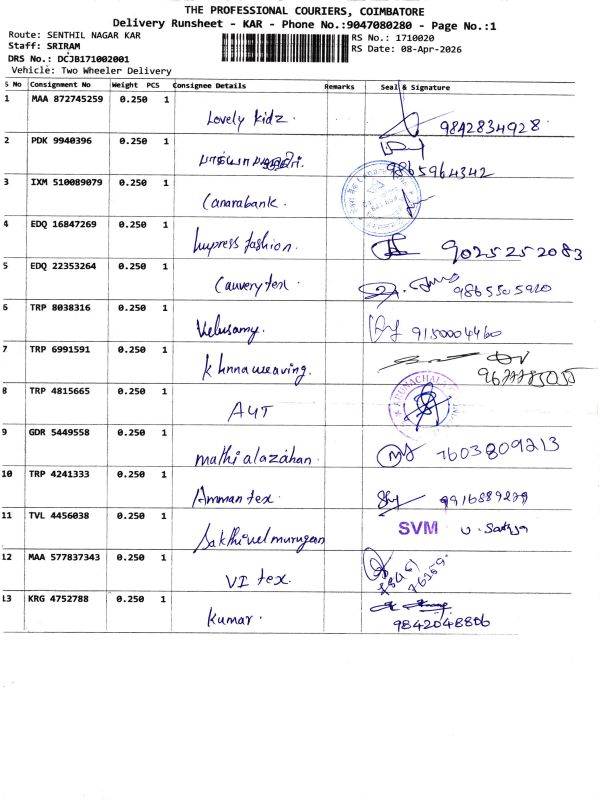 THE PROFESSIONAL COURIERS, COIMBATORE
Delivery Runsheet - KAR - Phone No.:9047080280 - Page No.:1
Route: SENTHIL NAGAR KAR
RS No.: 1710020
Staff: SRIRAM
RS Date: 08-Apr-2026
DRS No.: DCJB171002001
Vehicle: Two Wheeler Delivery
S No Consignment No Weight PCS Consignee Details Remarks Seal & Signature
1 MAA 872745259 0.250 1 Lovely kidz. 9842834928
2 PDK 9940396 0.250 1 9865964342
3 IXM 510089079 0.250 1 Canarabank.
4 EDQ 16847269 0.250 1 Impress fashion. 9025252083
5 EDQ 22353264 0.250 1 Cauvery tex.
6 TRP 8038316 0.250 1 Velusamy. 9150004460
7 TRP 6991591 0.250 1 weaving.
8 TRP 4815665 0.250 1 A4T ARUNACHALA
9 GDR 5449558 0.250 1 mathi alazahan. 7603809213
10 TRP 4241333 0.250 1 Amman tex.
11 TVL 4456038 0.250 1 Sakthivel murugan SVM
12 MAA 577837343 0.250 1 VI tex.
13 KRG 4752788 0.250 1 Kumar. 9842048806